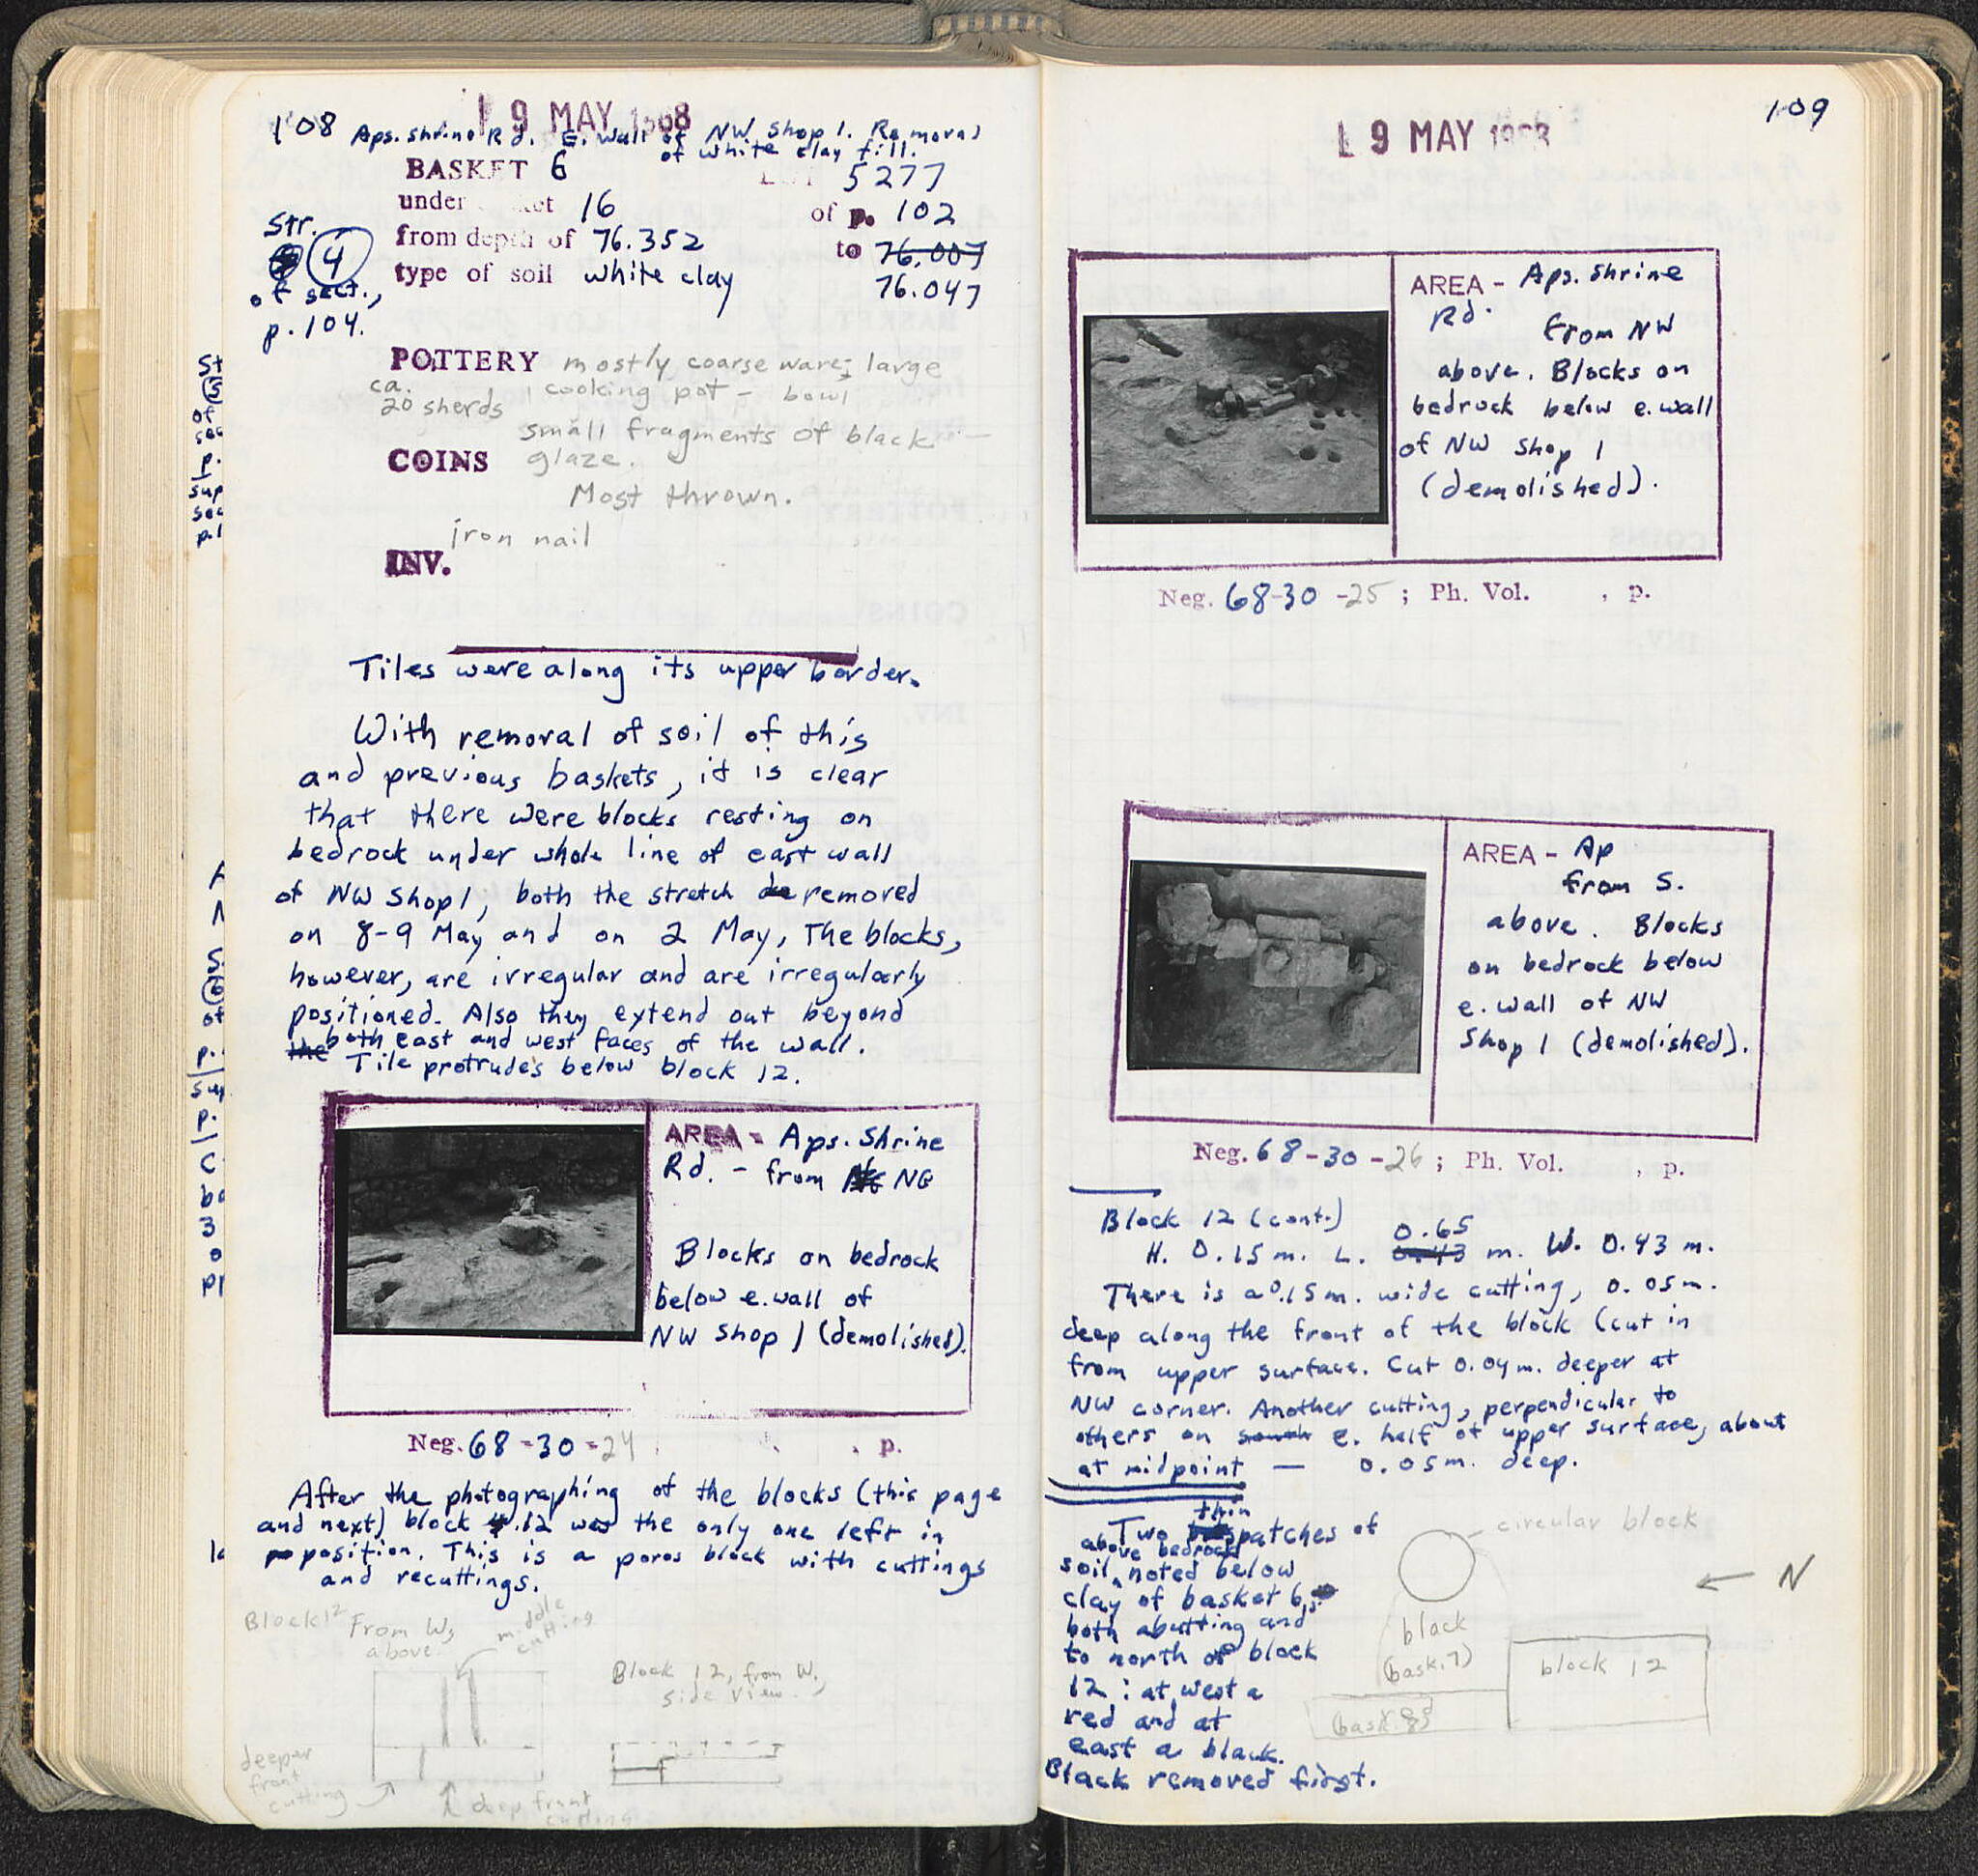 108
19 MAY 1968
Aps. shrine Rd. E. Wall of NW Shop 1. Removal
of white clay fill.
BASKET 6 LOT 5277
under basket 16 of p. 102
from depth of 76.352 to 76.007
type of soil white clay 76.047
Str.
4
of sect.,
p. 104.
POTTERY mostly coarse ware; large
ca.
20 sherds
1 cooking pot - bowl
small fragments of black -
glaze.
COINS
Most thrown.
iron nail
INV.
Tiles were along its upper border.
With removal of soil of this
and previous baskets, it is clear
that there were blocks resting on
bedrock under whole line of east wall
of NW Shop 1, both the stretch removed
on 8-9 May and on 2 May, The blocks,
however, are irregular and are irregularly
positioned. Also they extend out beyond
the both east and west faces of the wall.
Tile protrudes below block 12.
AREA - Aps. Shrine
Rd. - from NE
Blocks on bedrock
below e. wall of
NW Shop 1 (demolished).
Neg. 68-30-24 , p.
After the photographing of the blocks (this page
and next) block 12 was the only one left in
position. This is a poros block with cuttings
and recuttings.
Block 12 From W,
above.
middle
cutting
Block 12, from W,
side view.
deeper
front
cutting
deep front
cutting
109
19 MAY 1968
AREA - Aps. Shrine
Rd. from NW
above. Blocks on
bedrock below e. wall
of NW Shop 1
(demolished).
Neg. 68-30-25; Ph. Vol. , p.
AREA - Ap
from S.
above. Blocks
on bedrock below
e. wall of NW
Shop 1 (demolished).
Neg. 68-30-26; Ph. Vol. , p.
Block 12 (cont.)
0.65
H. 0.15 m. L. 0.43 m. W. 0.43 m.
There is a 0.15 m. wide cutting, 0.05 m.
deep along the front of the block (cut in
from upper surface. Cut 0.04 m. deeper at
NW corner. Another cutting, perpendicular to
others on south e. half of upper surface, about
at midpoint — 0.05 m. deep.
thin
Two patches of
above bedrock
soil, noted below
clay of basket 6,
both abutting and
to north of block
12: at west a
red and at
east a black.
Black removed first.
circular block
N
black
(bask. 7)
block 12
(bask. 8)